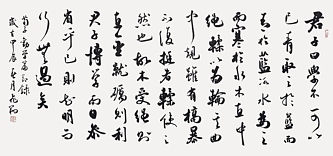 君子曰學不可以
已青取之於藍而
青於藍冰水為之
而寒於水木直中
繩輮以為輪其曲
中規雖有槁暴
不復挺者輮使之
然也故木受繩則
直金就礪則利
君子博學而日參
省乎己則知明而
行無過矣
荀子勸學篇句錄
歲在甲辰春月